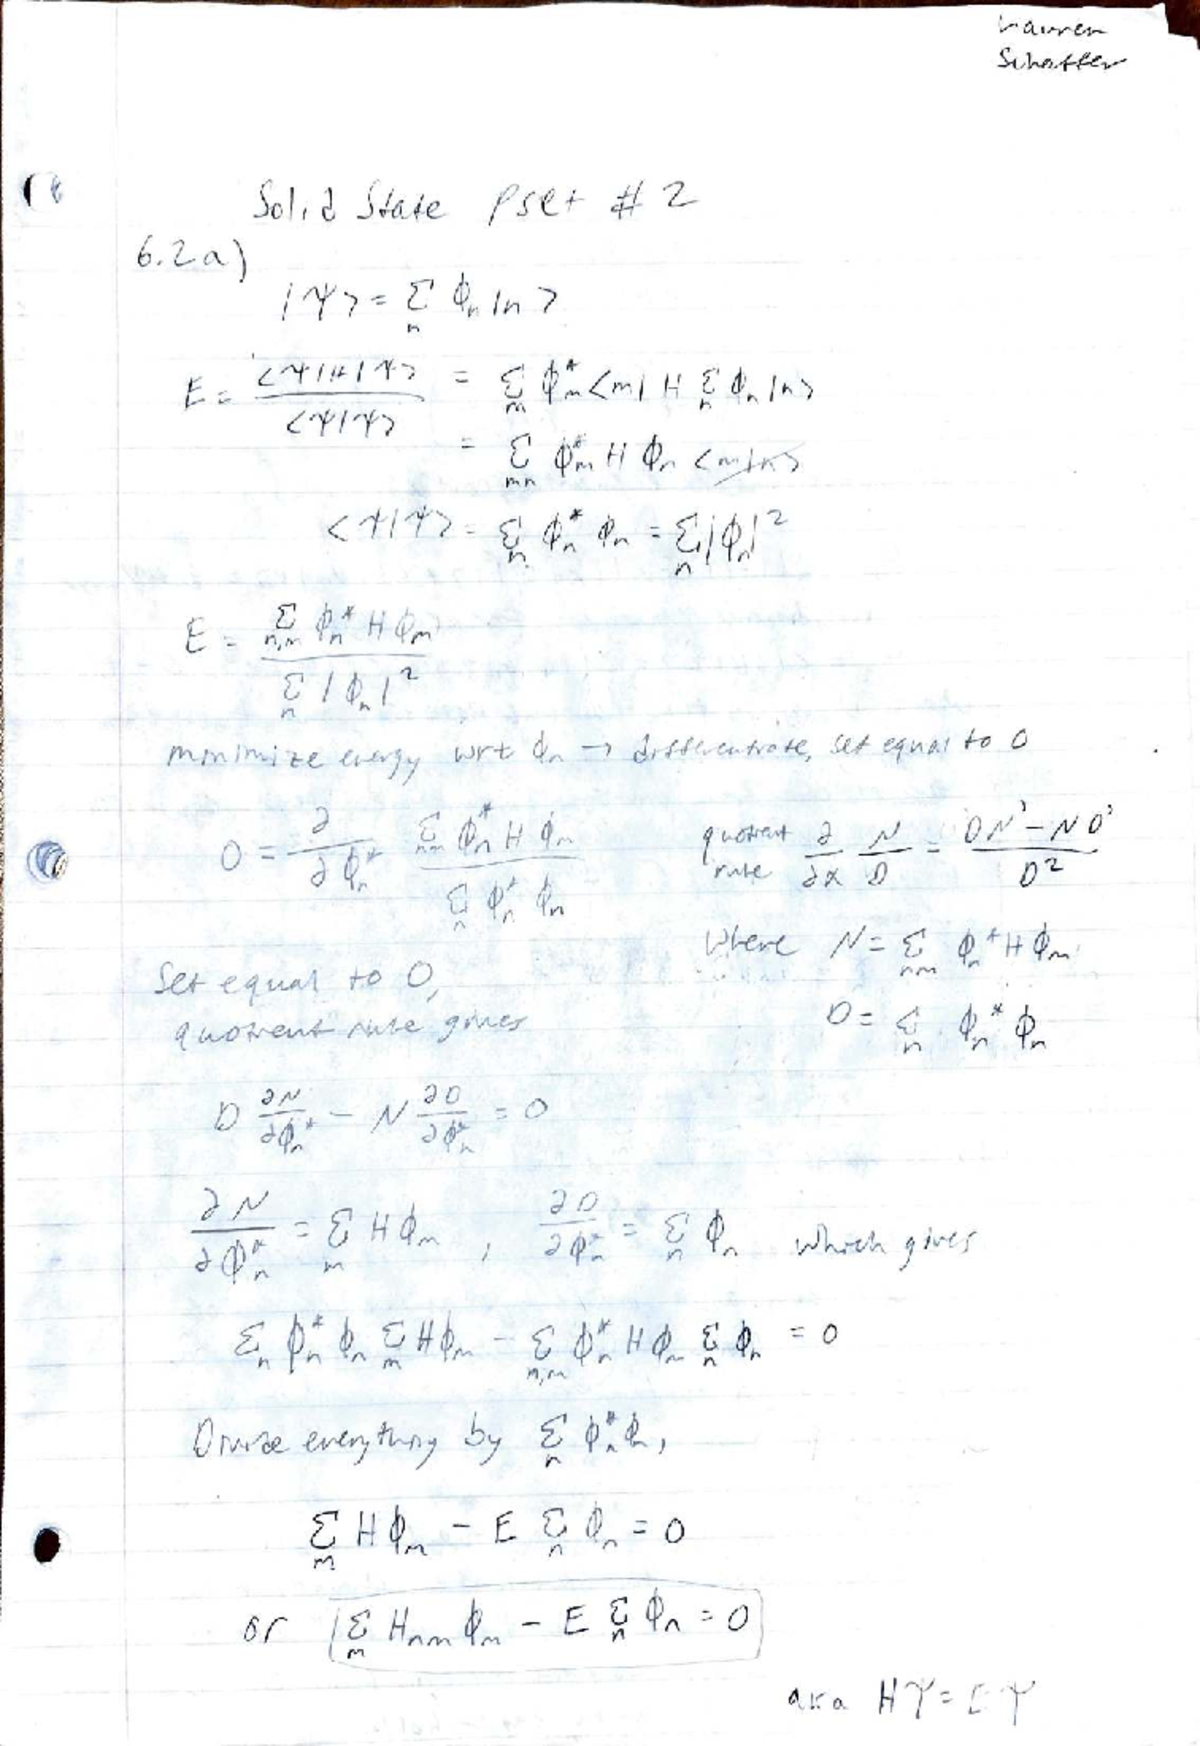 Lauren
Schaffer
Solid State Pset # 2
6.2a)
|Ψ> = Σ_n ϕ_n |n>
E = <Ψ|H|Ψ> / <Ψ|Ψ> = Σ_m ϕ_m^* <m| H Σ_n ϕ_n |n>
= Σ_mn ϕ_m^* H ϕ_n <m|n>
<Ψ|Ψ> = Σ_n ϕ_n^* ϕ_n = Σ_n |ϕ_n|^2
E = Σ_n,m ϕ_n^* H ϕ_m / Σ_n |ϕ_n|^2
minimize energy wrt ϕ_n → differentiate, set equal to 0
0 = ∂/∂ϕ_n^* Σ_nm ϕ_n^* H ϕ_m / Σ_n ϕ_n^* ϕ_n
quotient rule ∂/∂x N/D = (DN' - ND') / D^2
where N = Σ_nm ϕ_n^* H ϕ_m
D = Σ_n ϕ_n^* ϕ_n
Set equal to 0,
quotient rule gives
D ∂N/∂ϕ_n^* - N ∂D/∂ϕ_n^* = 0
∂N/∂ϕ_n^* = Σ_m H ϕ_m , ∂D/∂ϕ_n^* = Σ_n ϕ_n which gives
Σ_n ϕ_n^* ϕ_n Σ_m H ϕ_m - Σ_n,m ϕ_n^* H ϕ_m Σ_n ϕ_n = 0
Divide everything by Σ_n ϕ_n^* ϕ_n,
Σ_m H ϕ_m - E Σ_n ϕ_n = 0
or Σ_m H_nm ϕ_m - E Σ_n ϕ_n = 0
aka HΨ = EΨ